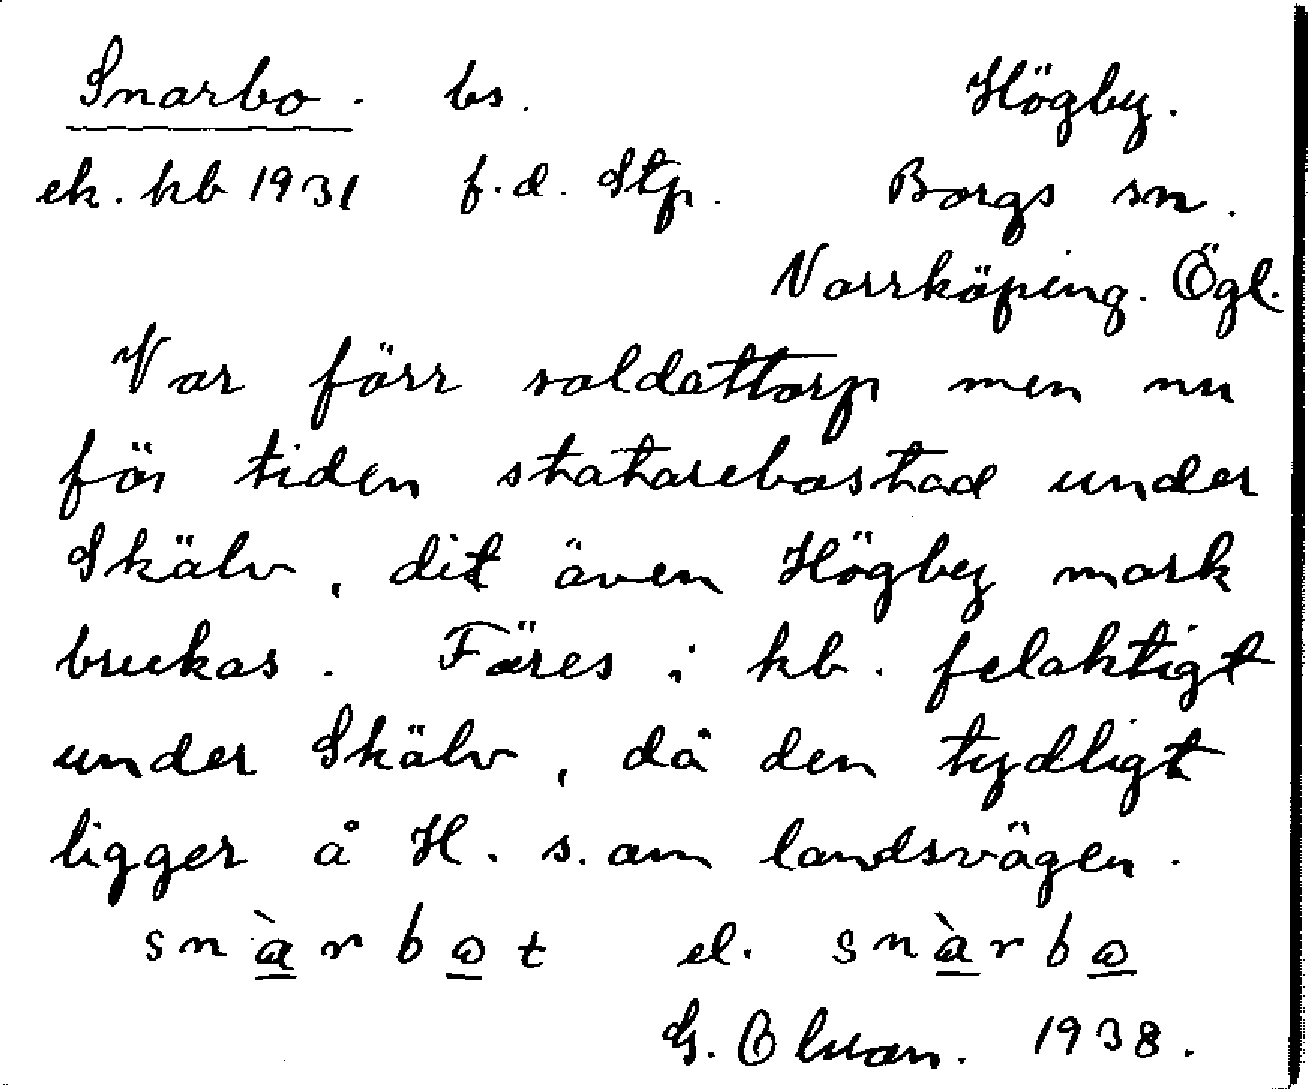 Snarbo. bs. Högby.
ek. kb 1931 f.d. Stp. Borgs sn.
Norrköping. Ögl.
Var förr soldattorp men nu
för tiden statarebostad under
Skälv, dit även Högby mark
brukas. Föres i kb. felaktigt
under Skälv, då den tydligt
ligger å H. s. om landsvägen.
snàrbot el. snàrbo
G. 1938.